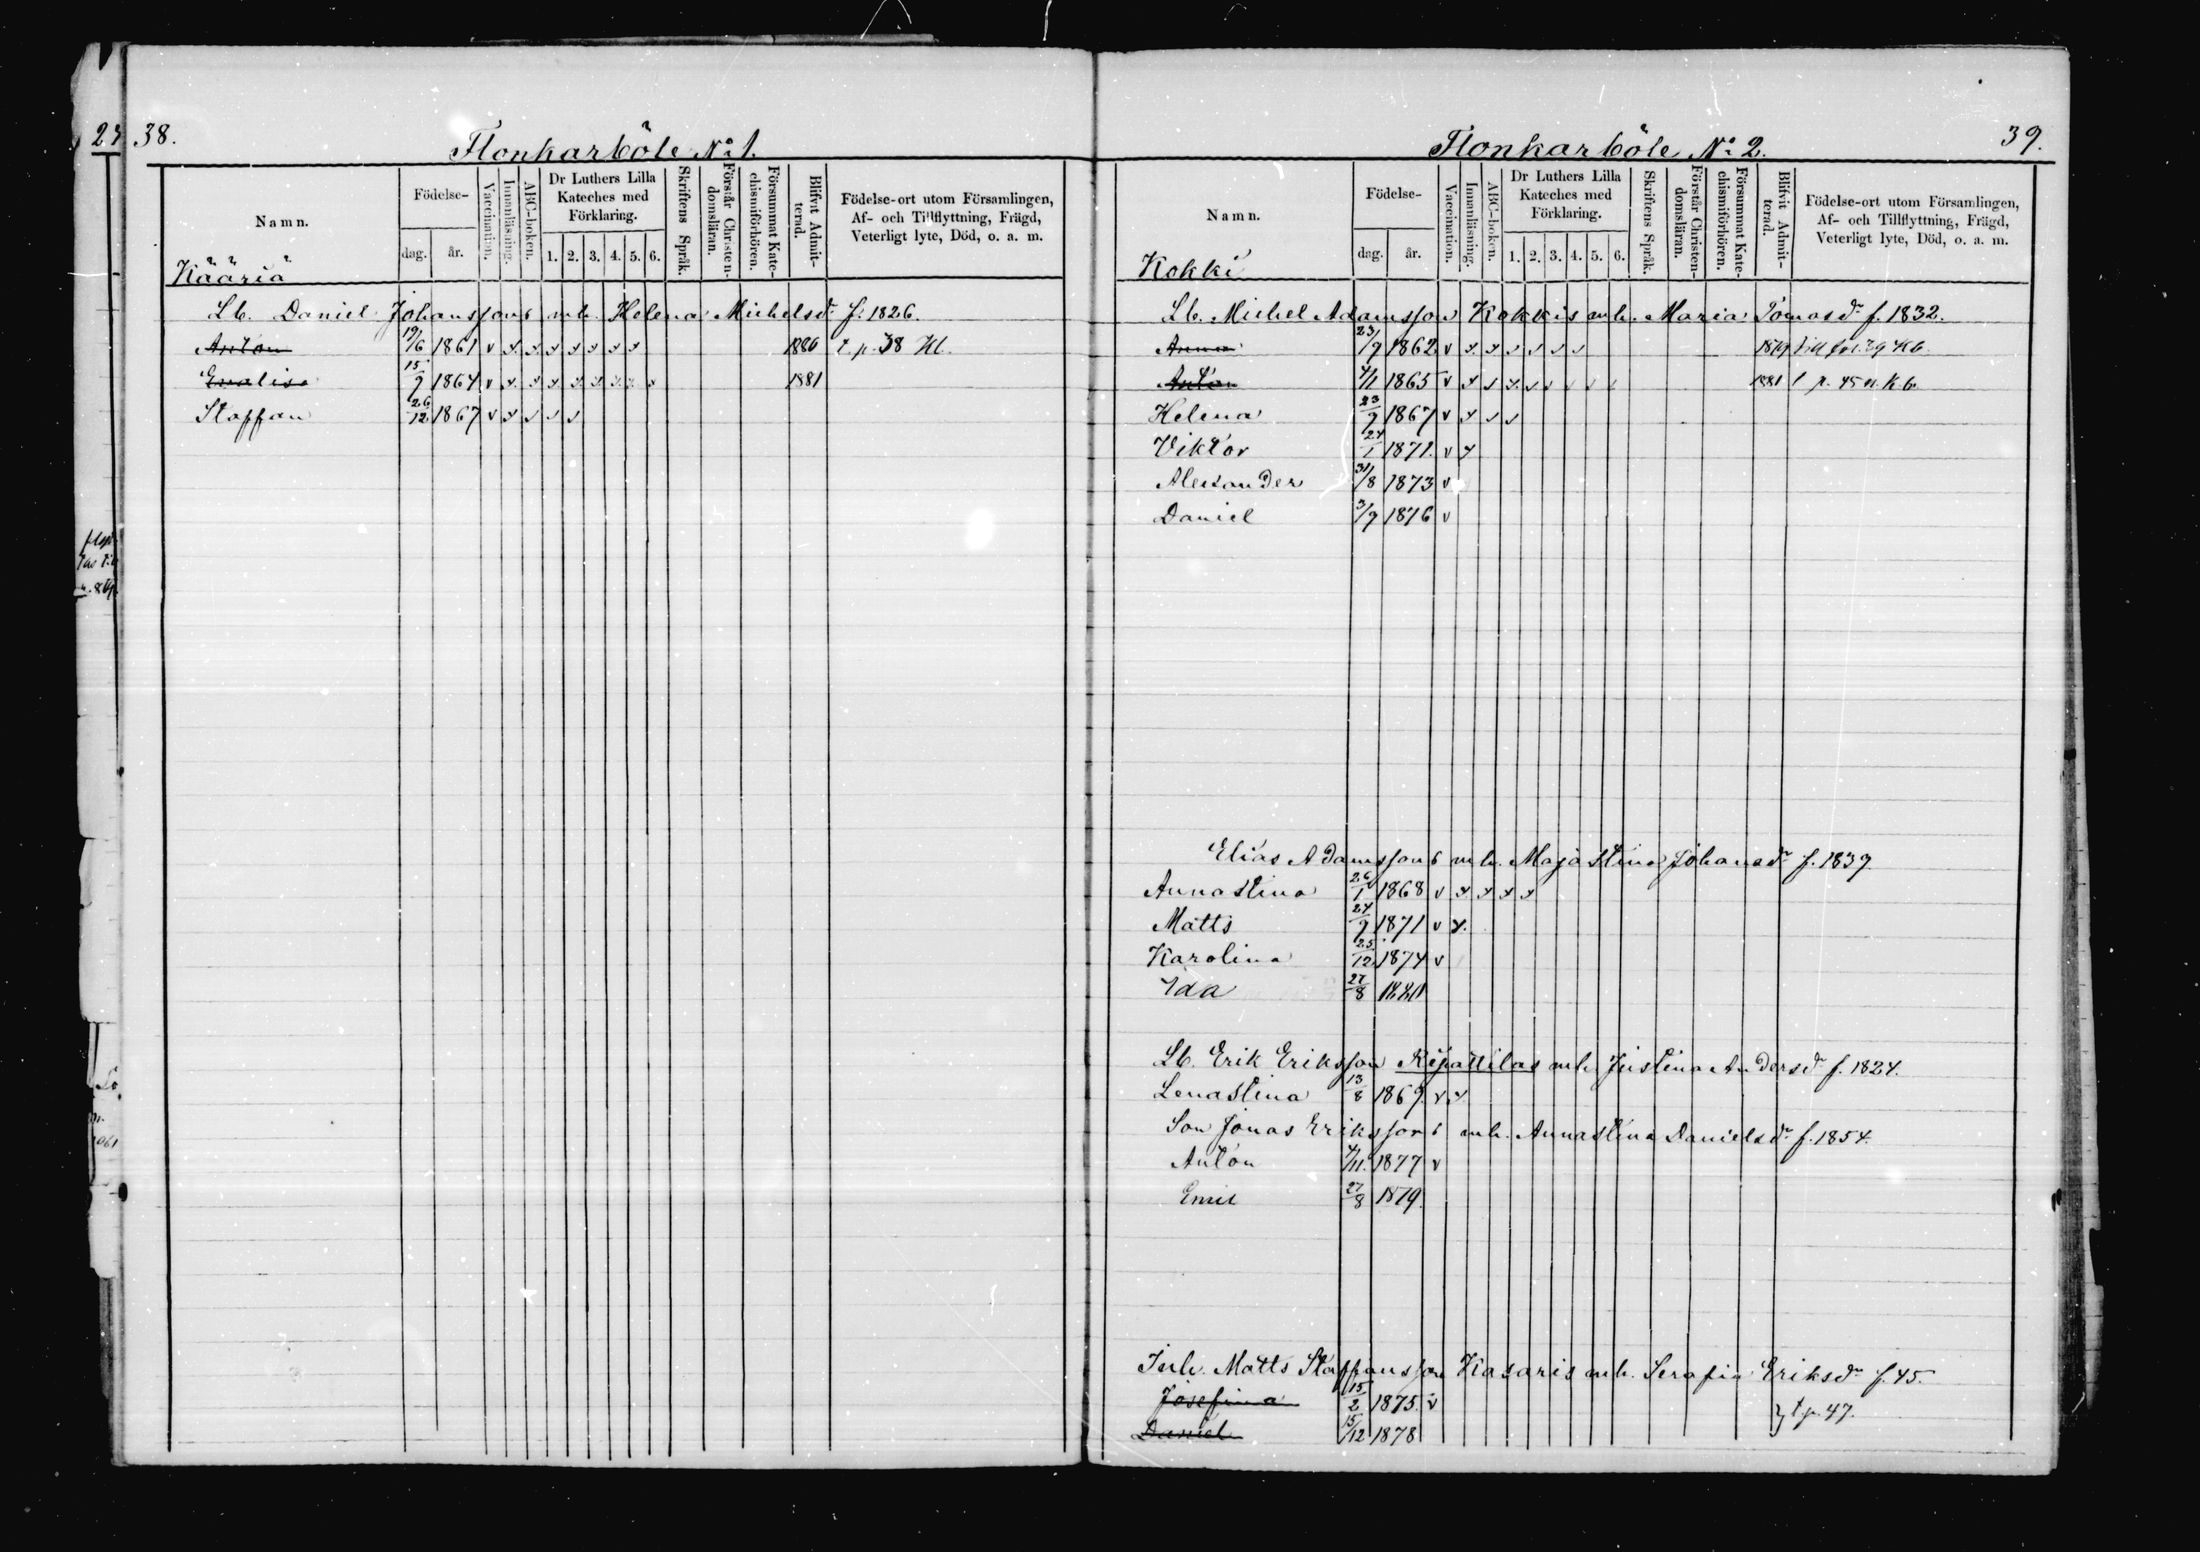 27
38.
Flonkarböle No 1.
Namn.
Födelse-
dag.
år.
Vaccination.
Innanläsning.
ABC-boken.
Dr Luthers Lilla
Kateches med
Förklaring.
1. 2. 3. 4. 5. 6.
Skriftens Språk.
Förstår Christen-
domsläran.
Försummat Kate-
chismiförhören.
Blifvit Admit-
terad.
Födelse-ort utom Församlingen,
Af- och Tillflyttning, Frägd,
Veterligt lyte, Död, o. a. m.
Kääriä
Lb. Daniel Johanssons m. h. Helena Michelsdr f. 1826.
Anton 19/6 1861 v 1880 t. p. 38 Kb.
Evalisa 15/9 1864 v 1881
Staffan 26/12 1867 v
39.
Flonkarböle No 2.
Namn.
Födelse-
dag.
år.
Vaccination.
Innanläsning.
ABC-boken.
Dr Luthers Lilla
Kateches med
Förklaring.
1. 2. 3. 4. 5. 6.
Skriftens Språk.
Förstår Christen-
domsläran.
Försummat Kate-
chismiförhören.
Blifvit Admit-
terad.
Födelse-ort utom Församlingen,
Af- och Tillflyttning, Frägd,
Veterligt lyte, Död, o. a. m.
Kokki
Lb. Michel Adamsson Kokkis m. h. Maria Tomasdr f. 1832.
Anna 23/9 1862 v 1879 till fol. 39 Kb.
Anton 4/1 1865 v 1881 t p. 45 n. Kb.
Helena 23/9 1867 v
Viktor 24/1 1871. v
Alexander 31/8 1873 v
Daniel 3/9 1876 v
Elias Adamssons m. h. Maja Stina Johansdr f. 1839.
Annastina 26/1 1868 v
Matts 24/9 1871 v
Karolina 25/12 1874 v
Ida 27/8 1880
Lb. Erik Eriksson Kipattilas m. h. Justina Andersdr f. 1824.
Lenastina 13/8 1869. v
Son Jonas Erikssons m. h. Annastina Danielsdr f. 1854.
Anton 4/11. 1877 v
Emil 27/8 1879.
Inh. Matts Staffansson Kasaris m. h. Serafia Eriksdr f. 45.
Josefina 15/2 1875. v
t p. 47.
Daniel 15/12 1878